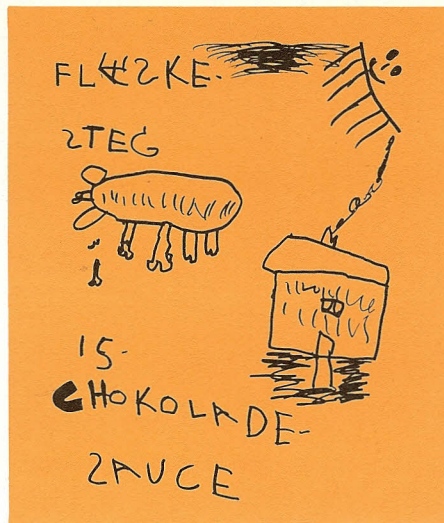 FLÆSKE-
STEG
IS-
CHOKOLADE-
SAUCE